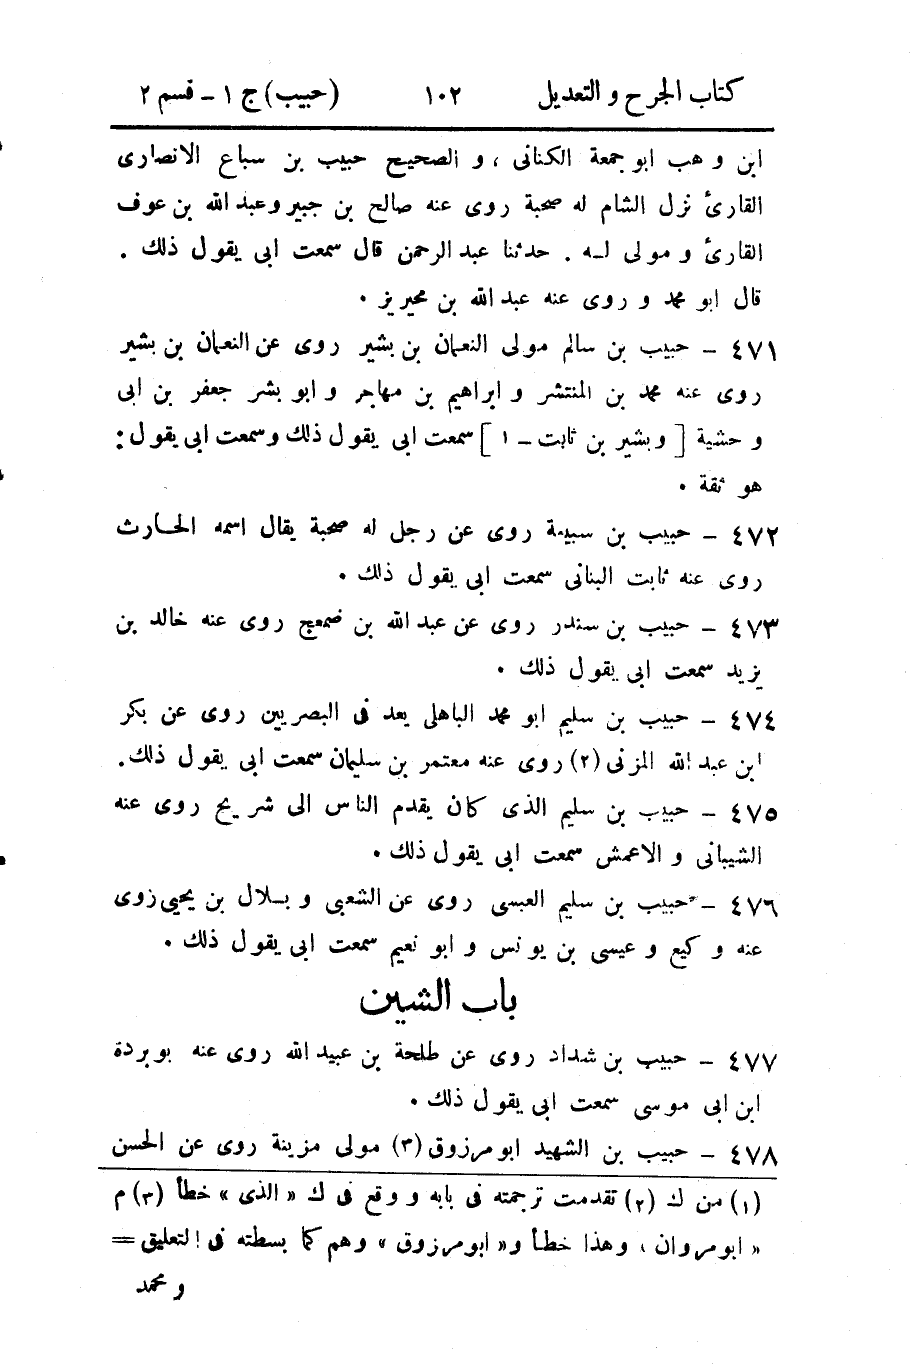 كتاب الجرح و التعديل ١٠٢ (حبيب) ج ١ - قسم ٢
ابن و هب ابو جمعة الكنانى ، و الصحيح حبيب بن سباع الانصارى
القارئ نزل الشام له صحبة روى عنه صالح بن جبير وعبد الله بن عوف
القارئ و مولى لـه . حدثنا عبد الرحمن قال سمعت ابى يقول ذلك .
قال ابو محمد و روى عنه عبد الله بن محيريز .
٤٧١ - حبيب بن سالم مولى النعمان بن بشير روى عن النعمان بن بشير
روى عنه محمد بن المنتشر و ابراهيم بن مهاجر و ابو بشر جعفر بن ابى
و حشية [ و بشير بن ثابت - ١ ] سمعت ابى يقول ذلك وسمعت ابى يقول :
هو ثقة .
٤٧٢ - حبيب بن سبيعة روى عن رجل له صحبة يقال اسمه الحـارث
روى عنه ثابت البنانى سمعت ابى يقول ذلك .
٤٧٣ - حبيب بن سندر روى عن عبد الله بن ضمعج روى عنه خالد بن
يزيد سمعت ابى يقول ذلك .
٤٧٤ - حبيب بن سليم ابو محمد الباهلى يعد فى البصريين روى عن بكر
ابن عبد الله المزنى (٢) روى عنه معتمر بن سليمان سمعت ابى يقول ذلك .
٤٧٥ - حبيب بن سليم الذى كان يقدم الناس الى شريح روى عنه
الشيبانى و الاعمش سمعت ابى يقول ذلك .
٤٧٦ - حبيب بن سليم العبسى روى عن الشعبى و بـلال بن يحيى زوى
عنه و كيع و عيسى بن يونس و ابو نعيم سمعت ابى يقول ذلك .
باب الشين
٤٧٧ - حبيب بن شداد روى عن طلحة بن عبيد الله روى عنه بو بردة
ابن ابى موسى سمعت ابى يقول ذلك .
٤٧٨ - حبيب بن الشهيد ابو مرزوق (٣) مولى مزينة روى عن الحسن
(١) من ك (٢) تقدمت ترجمته فى بابه و وقع فى ك « الذى » خطأ (٣) م
« ابو مروان ، وهذا خطأ و« ابو مرزوق » وهم كما بسطته فى التعليق =
و محمد